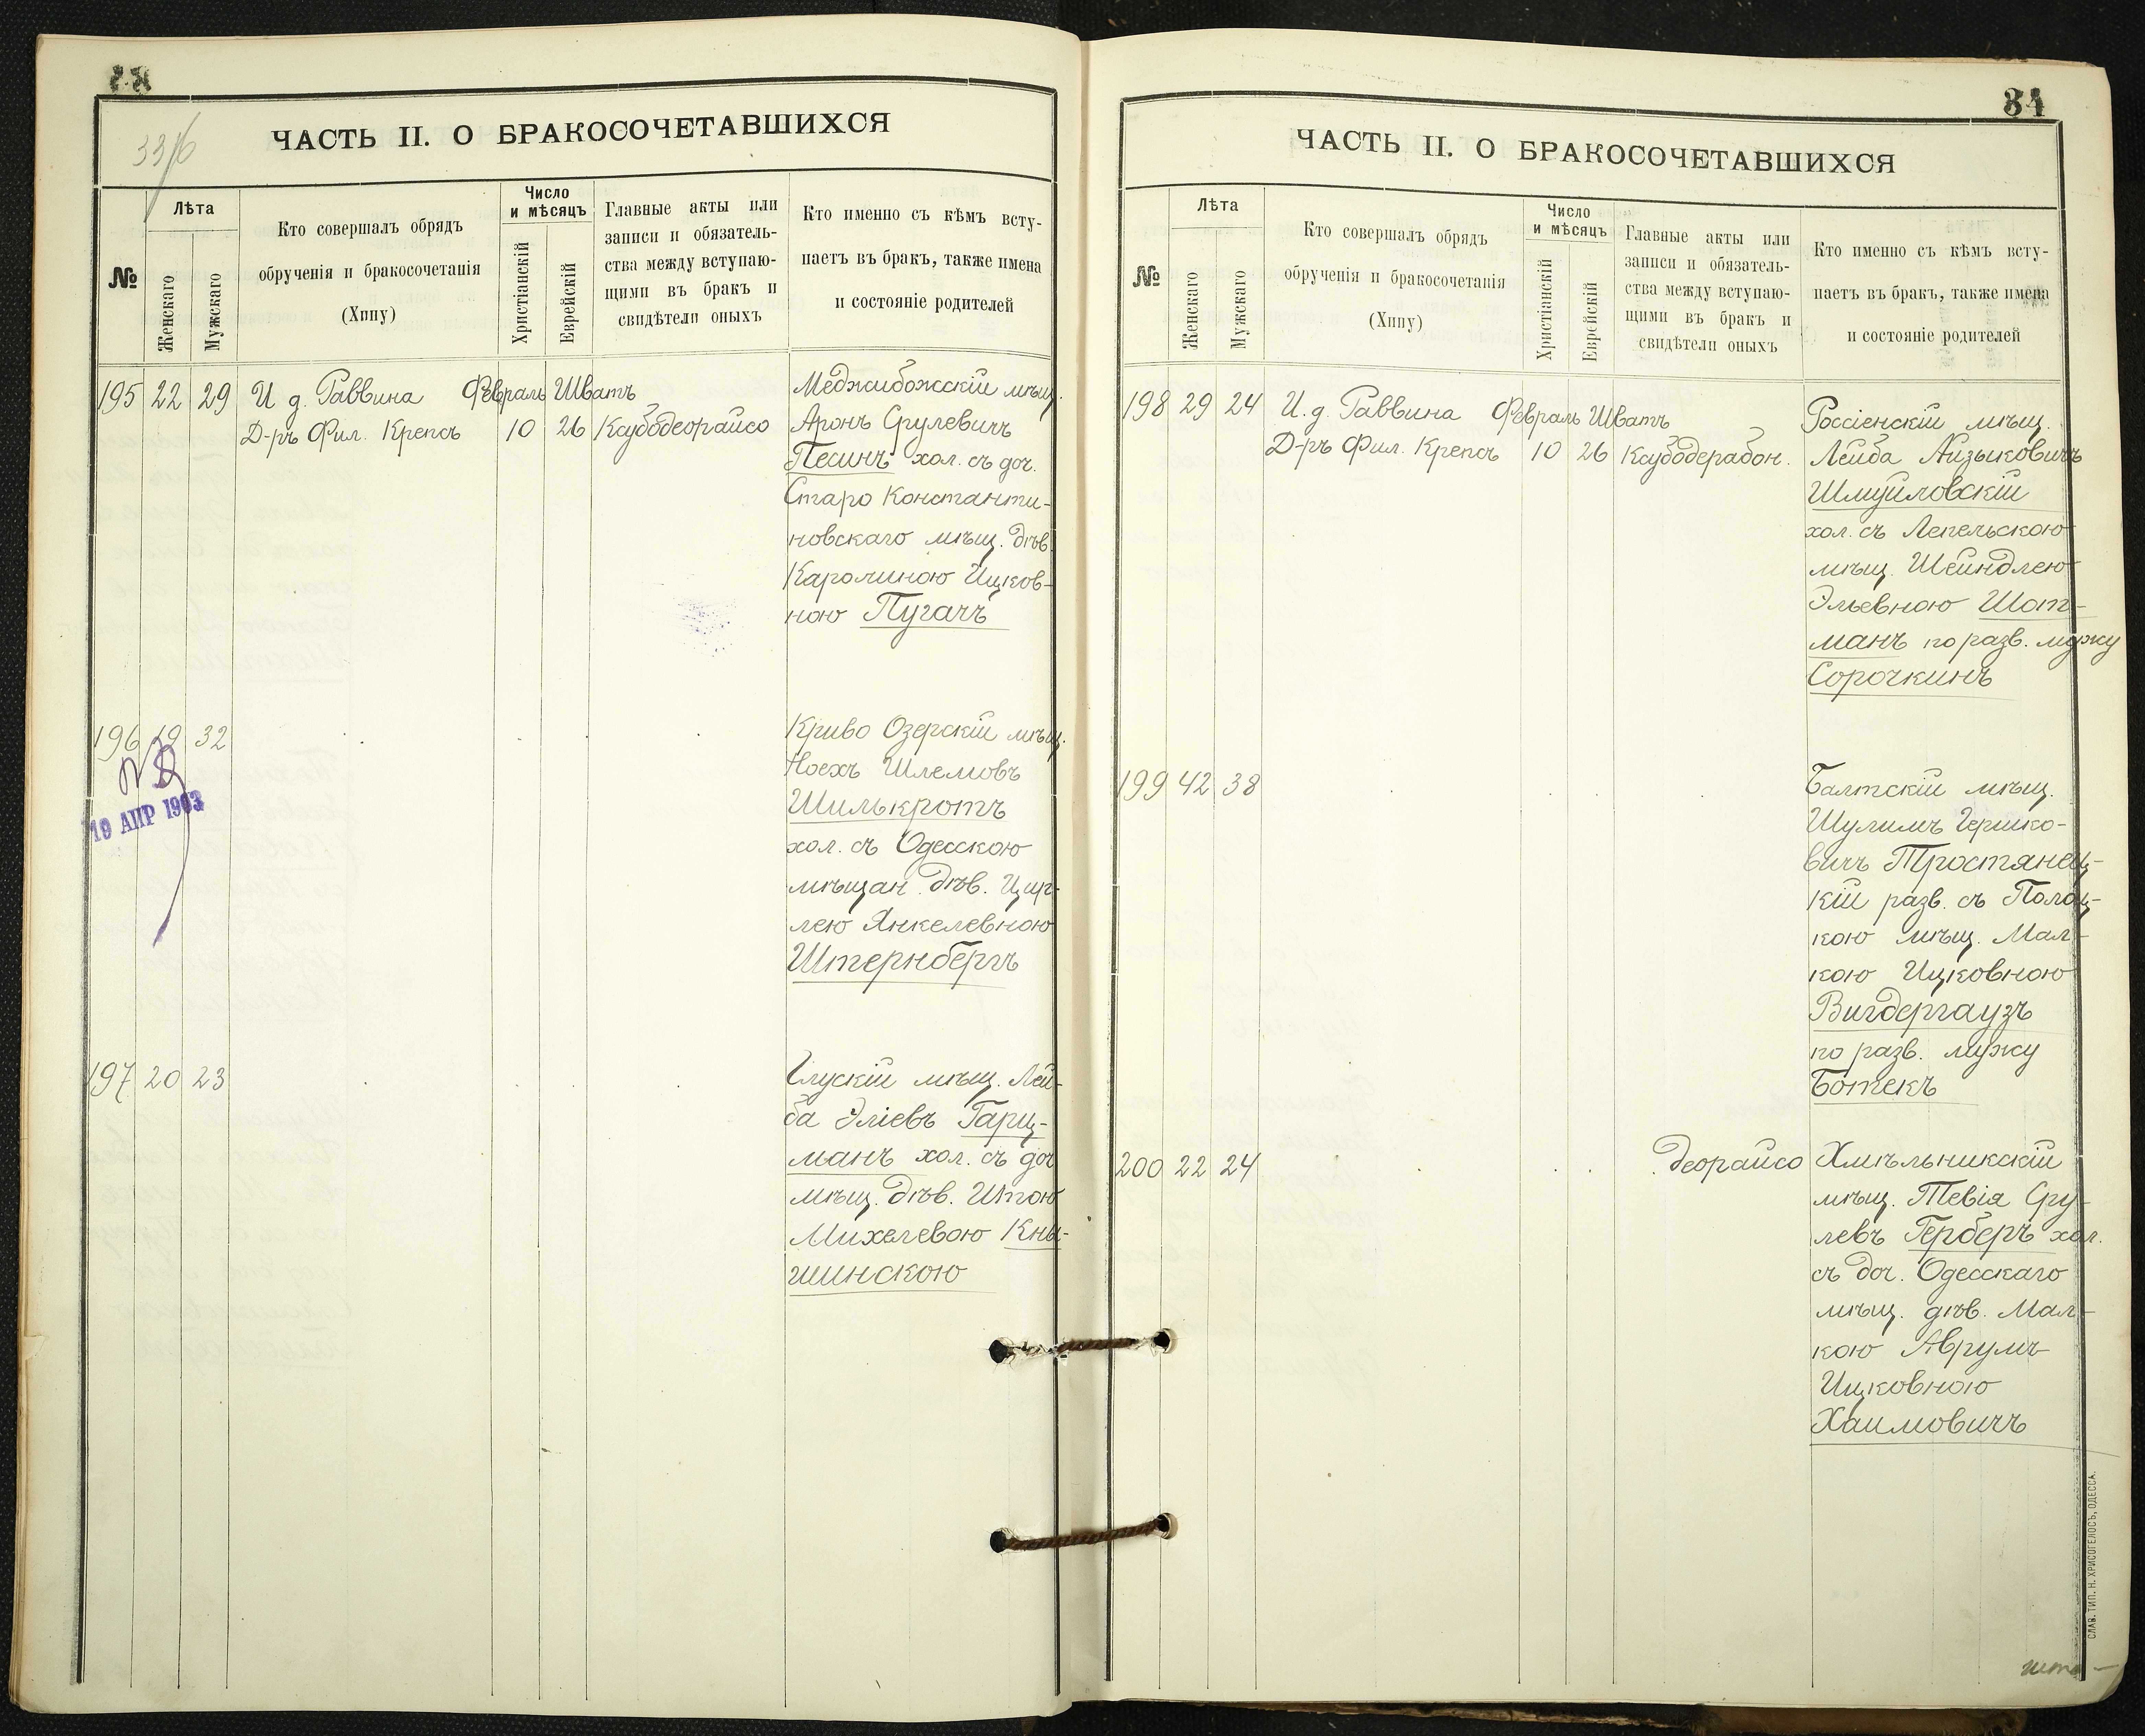 33/6
ЧАСТЬ II. О БРАКОСОЧЕТАВШИХСЯ
№
Лѣта
Женскаго
Мужскаго
Кто совершалъ обрядъ
обрученія и бракосочетанія
(Хипу)
Число
и мѣсяцъ
Христіанскій
Еврейскій
Главные акты или
записи и обязатель-
ства между вступаю-
щими въ бракъ и
свидѣтели оныхъ
Кто именно съ кѣмъ всту-
паетъ въ бракъ, также имена
и состояніе родителей
195 22 29 И д. Раввина Февраль Шватъ
Д-ръ Фил. Крепсъ 10 26 Ксубодеорайсо
Меджибожскій мѣщ.
Аронъ Срулевичъ
Песинъ хол. съ доч.
Старо Константи-
новскаго мѣщ. дѣв.
Каролиною Ицков-
ною Пугачъ
196 19 32
19 АПР 1903
Криво Озерскій мѣщ.
Ноехъ Шлемовъ
Шилькротъ
хол. съ Одесскою
мѣщан. дѣв. Цир-
лею Янкелевною
Штернбергъ
197 20 23
Глускій мѣщ. Лей-
ба Эліевъ Гарц-
манъ хол. съ доч
мѣщ. дѣв. Итою
Михелевою Кны-
шинскою
84
ЧАСТЬ II. О БРАКОСОЧЕТАВШИХСЯ
№
Лѣта
Женскаго
Мужскаго
Кто совершалъ обрядъ
обрученія и бракосочетанія
(Хипу)
Число
и мѣсяцъ
Христіанскій
Еврейскій
Главные акты или
записи и обязатель-
ства между вступаю-
щими въ бракъ и
свидѣтели оныхъ
Кто именно съ кѣмъ всту-
паетъ въ бракъ, также имена
и состояніе родителей
198 29 24 И. д. Раввина Февраль Шватъ
Д-ръ Фил. Крепсъ 10 26 Ксубодерабон.
Россіенскій мѣщ.
Лейба Айзыковичъ
Шмуйловскій
хол. съ Лепельскою
мѣщ. Шейндлею
Эльевною Шот-
манъ по разв. мужу
Сорочкинъ
199 42 38
Балтскій мѣщ.
Шулимъ Гершко-
вичъ Тростянец-
кій разв. съ Полоц-
кою мѣщ. Мал-
кою Ицковною
Вигдергаузъ
по разв. мужу
Ботекъ
200 22 24
деорайсо
Хмѣльникскій
мѣщ. Тевія Сру-
левъ Герберъ хол.
съ доч. Одесскаго
мѣщ. дѣв. Мал-
кою Аврумъ
Ицковною
Хаимовичъ
СЛАВ. ТИП. Н. ХРИСОГЕЛОСЪ, ОДЕССА.